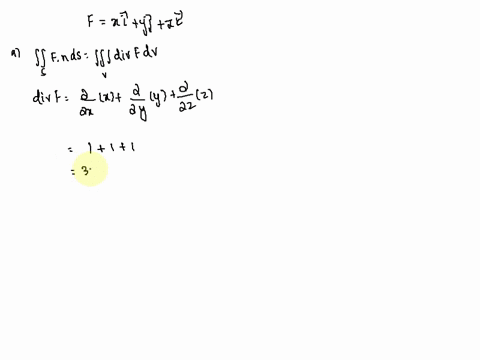 F = x i⃗ + y j⃗ + z k⃗
a) ∬_S F. n ds = ∭_V div F dv
div F = ∂/∂x (x) + ∂/∂y (y) + ∂/∂z (z)
= 1 + 1 + 1
= 3.